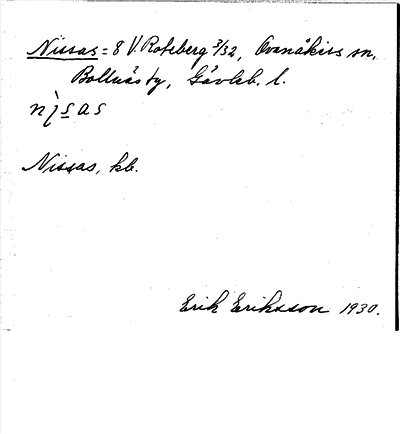 Nissas = 8 V. Roteberg 3/32, Ovanåkers sn,
Bollnäs tg, Gävleb. l.
nì̀sas
Nissas, kb.
Erik Eriksson 1930.